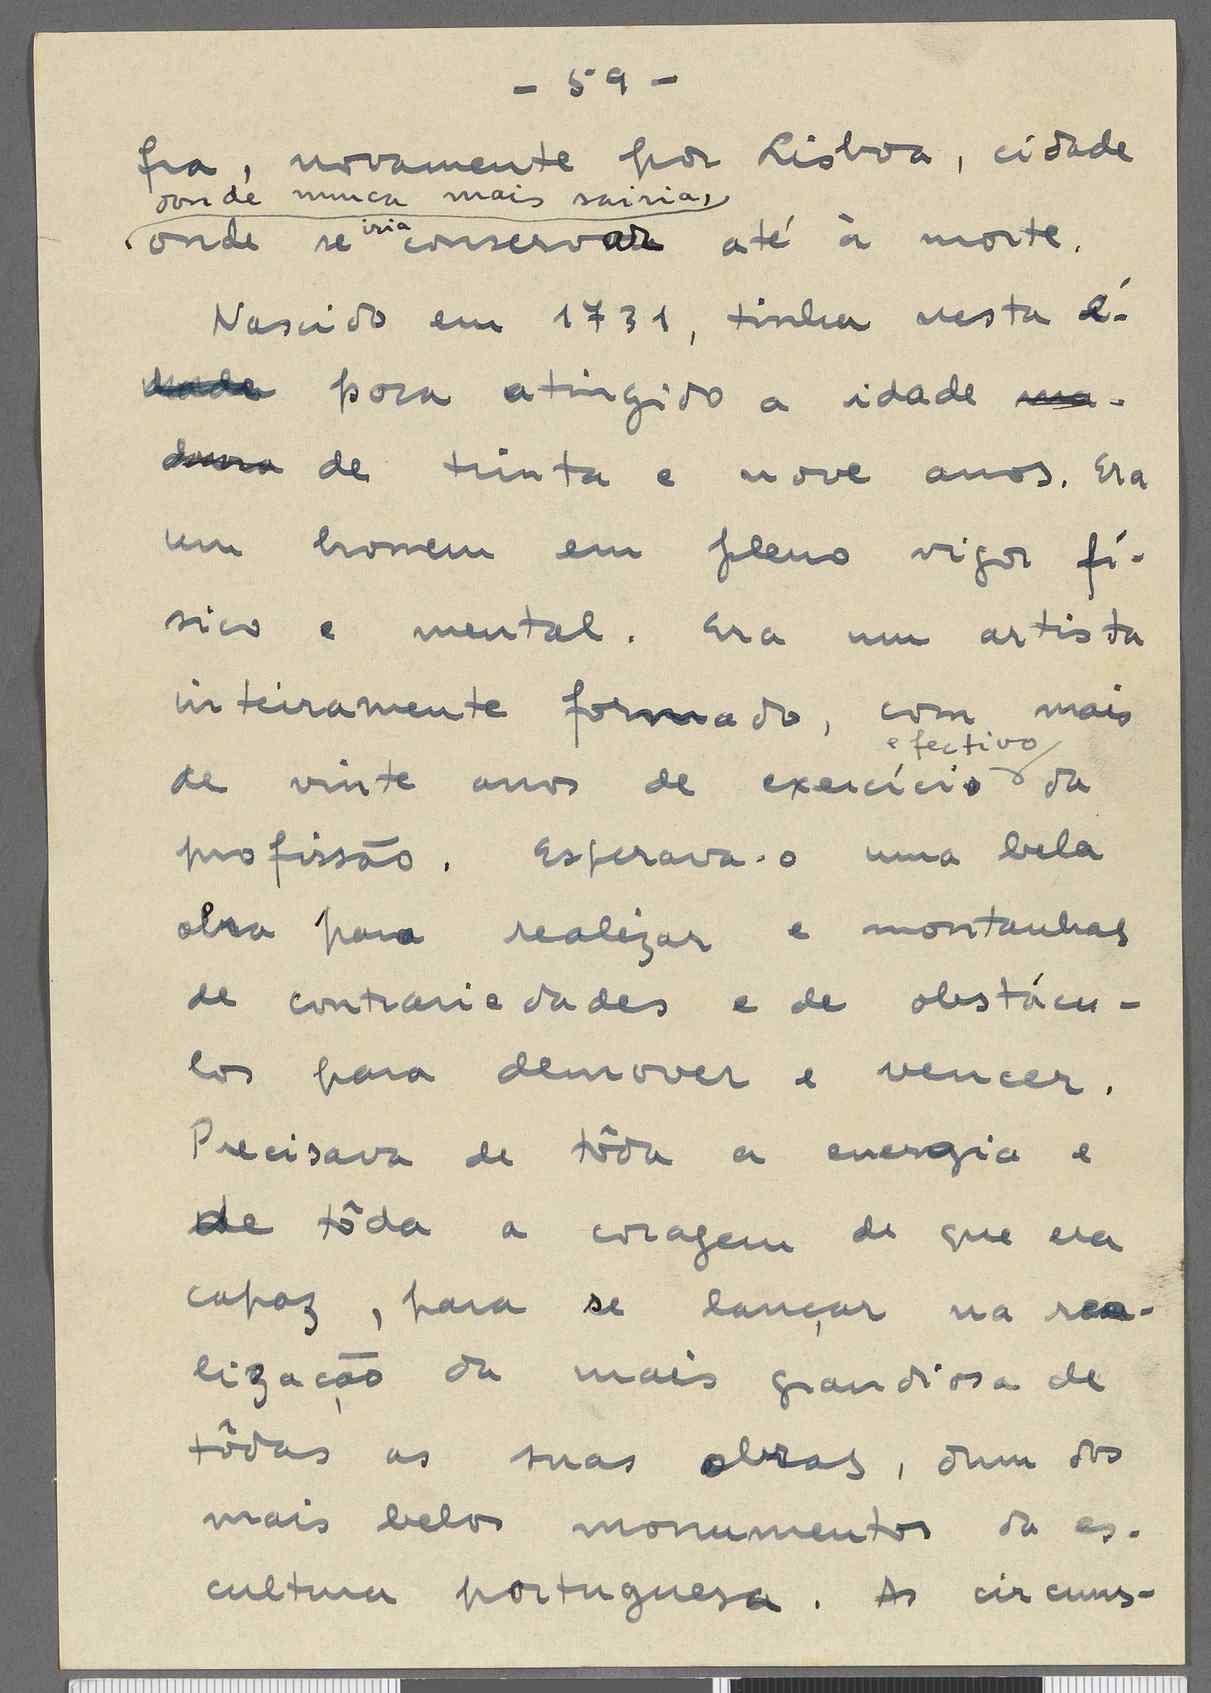 - 59 -
fra, novamente por Lisboa, cidade
donde nunca mais sairia,
onde se iria conservar até à morte.
Nascido em 1731, tinha nesta é-
poca atingido a idade ma-
dura de trinta e nove anos. Era
um homem em pleno vigor fí-
sico e mental. Era um artista
inteiramente formado, com mais
efectivo
de vinte anos de exercício da
profissão. Esperava-o uma bela
obra para realizar e montanhas
de contrariedades e de obstácu-
los para demover e vencer.
Precisava de tôda a energia e
de tôda a coragem de que era
capaz, para se lançar na rea-
lização da mais grandiosa de
tôdas as suas obras, dum dos
mais belos monumentos da es-
cultura portuguesa. As circuns-